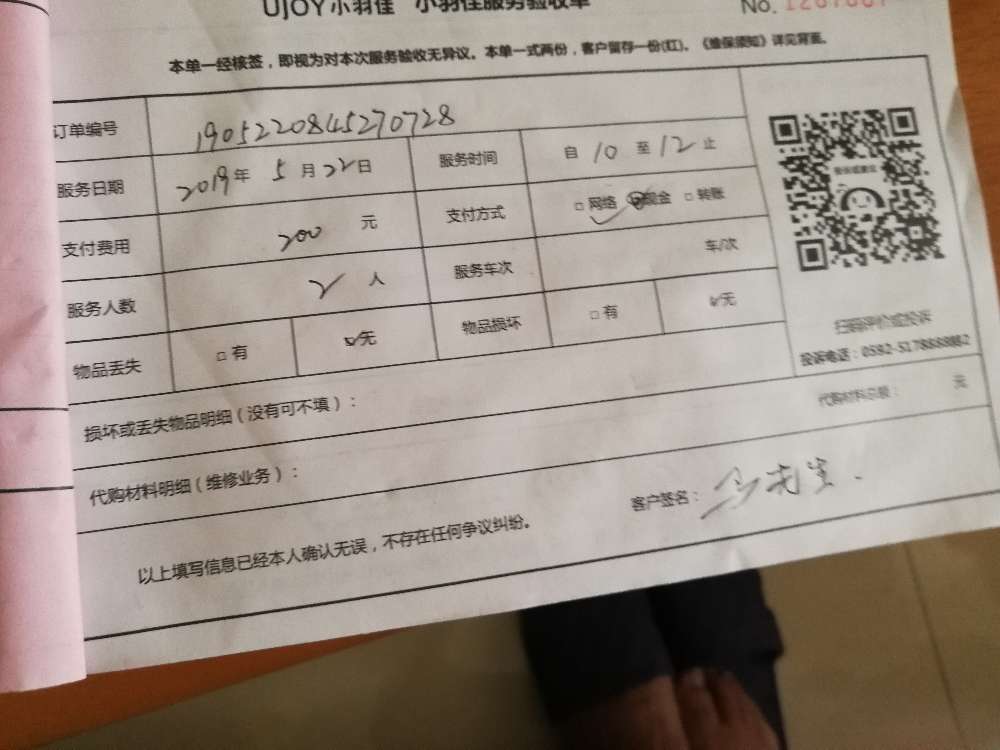 UJOY小羽佳 小羽佳服务验收单
No.
本单一经核签，即视为对本次服务验收无异议。本单一式两份，客户留存一份(红)。《维保须知》详见背面。
订单编号 1905220845270728
服务日期 2019年 5月22日 服务时间 自 10 至 12 止
支付费用 200 元 支付方式 □网络 现金 □转账
服务人数 2 人 服务车次 车/次
物品丢失 □有 ☑无 物品损坏 □有 ☑无
扫码评价或投诉
损坏或丢失物品明细（没有可不填）：
代购材料明细（维修业务）： 代购材料总额： 元
以上填写信息已经本人确认无误，不存在任何争议纠纷。
客户签名：